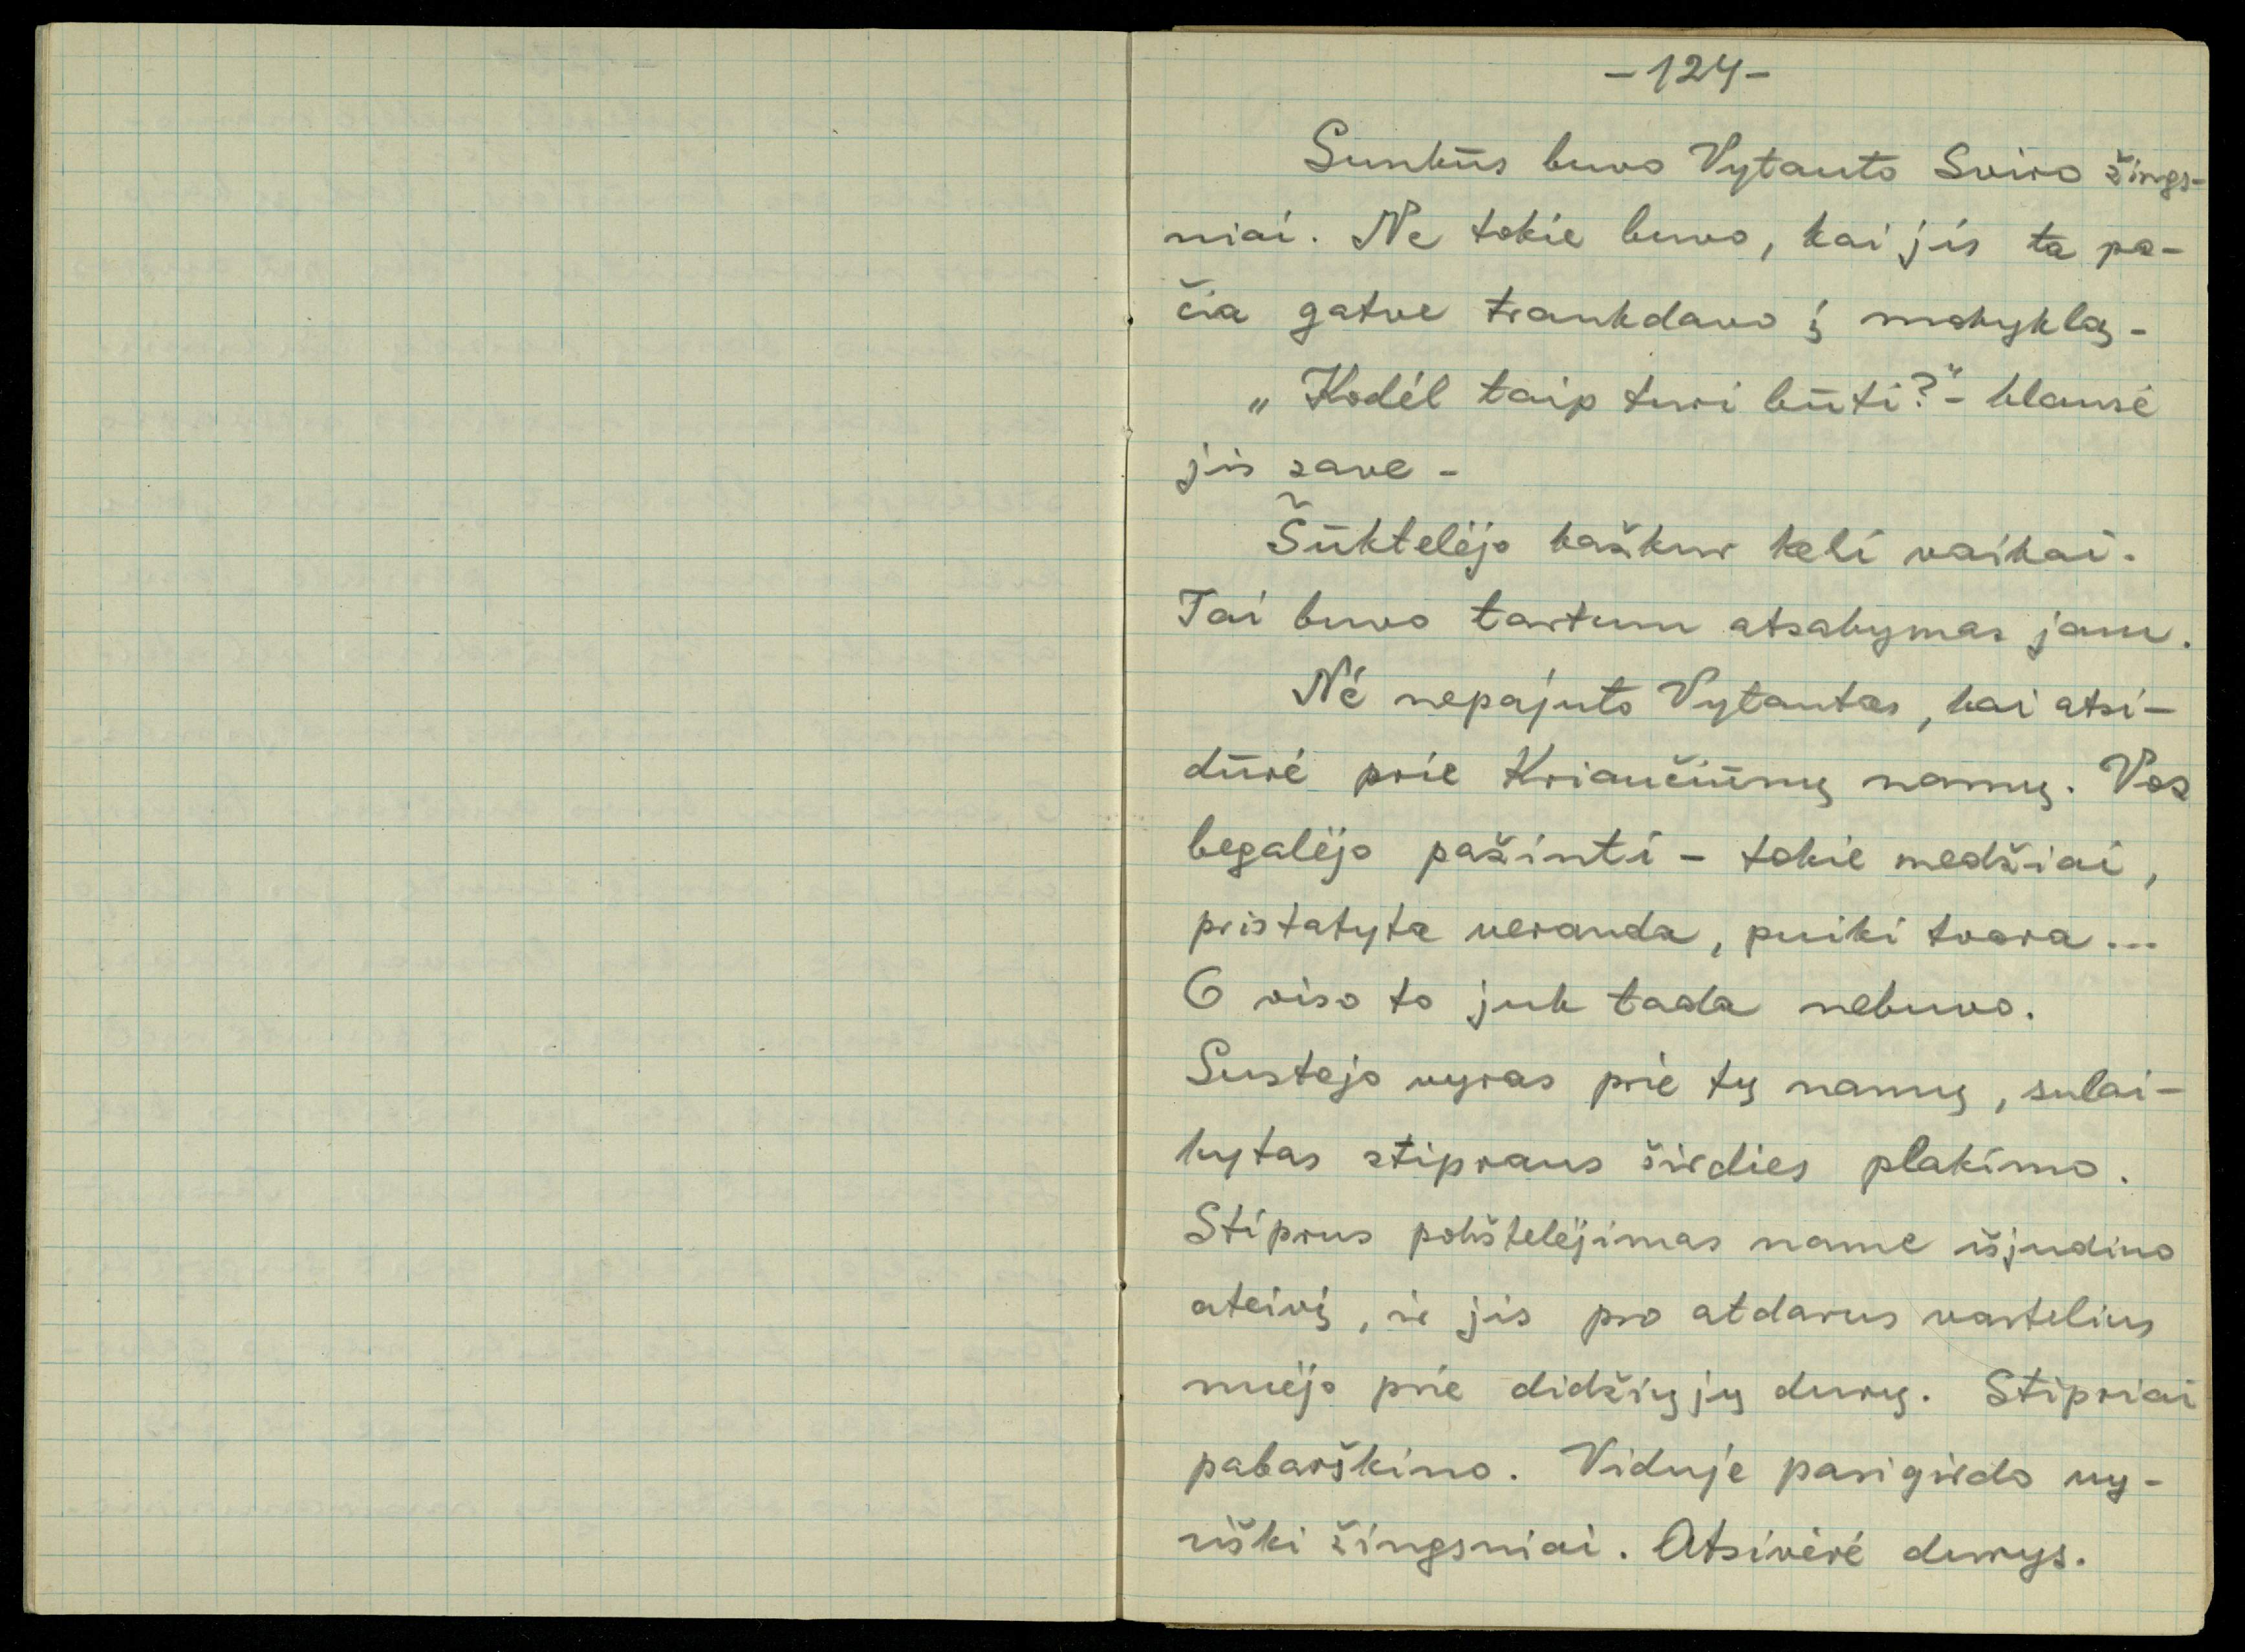 -124-
Sunkūs buvo Vytauto Sviro žings-
niai. Ne tokie buvo, kai jis ta pa-
čia gatve traukdavo į mokyklą -
„Kodėl taip turi būti?" - klausė
jis save -
Šūktelėjo kažkur keli vaikai.
Tai buvo tartum atsakymas jam.
Nė nepajuto Vytautas, kai atsi-
dūrė prie Kriaučiūnų namų. Vos
begalėjo pažinti - tokie medžiai,
pristatyta veranda, puiki tvora...
O viso to juk tada nebuvo.
Sustojo vyras prie tų namų, sulai-
kytas stipraus širdies plakimo.
Stiprus pokštelėjimas name išjudino
ateivį, ir jis pro atdarus vartelius
nuėjo prie didžiųjų durų. Stipriai
pabarškino. Viduje pasigirdo vy-
riški žingsniai. Atsivėrė durys.